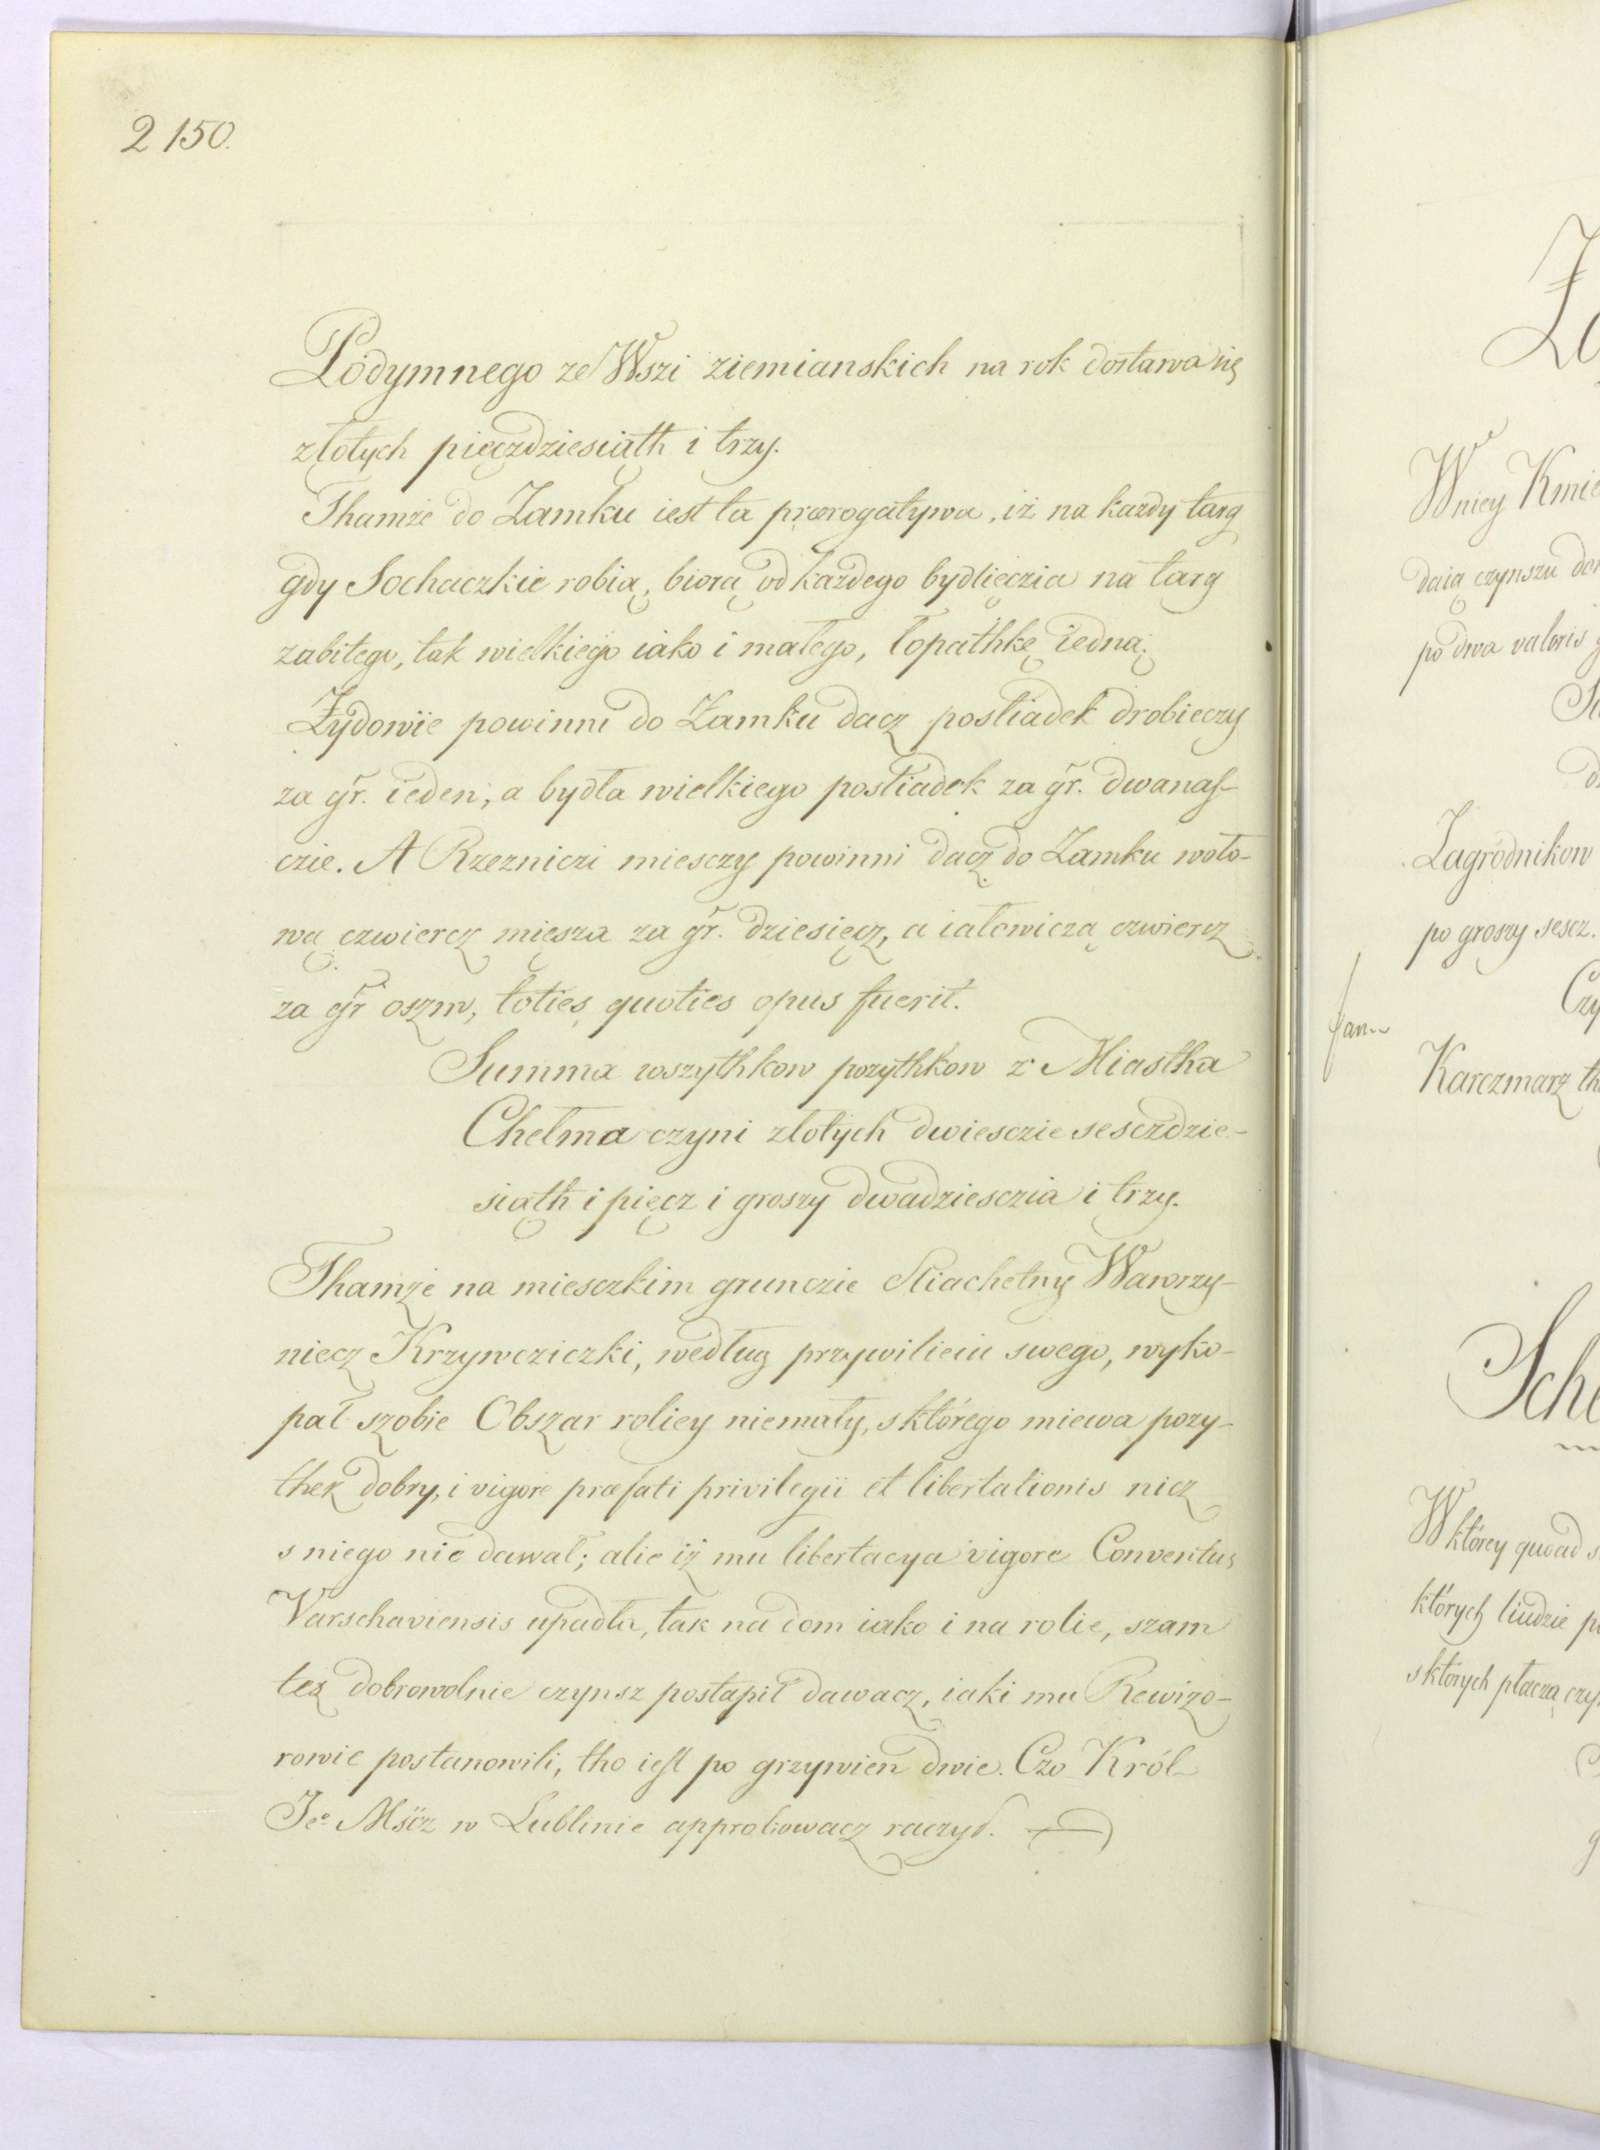 2150.
Podymnego ze Wszi ziemianskich na rok dostawa się
złotych pięczdziesiąth i trzy.
Thamże do Zamku iest ta prærogatywa, iż na kazdy targ
gdy Sochaczkie robią, biorą od kazdego bydlięczia na targ
zabitego, tak wielkiego iako i małego, łopathkę iedną.
Żydowie powinni do Zamku dacz posliadek drobieczy
za gr. ieden, a bydła wielkiego posliadek za gr. dwanas-
czie. A Rzezniczi miesczy powinni dacz do Zamku woło-
wą czwiercz mięsza za gr. dziesięcz, a iałowiczą czwiercz
za gr oszm, toties quoties opus fuerit.
Summa wszythkow pozythkow z Miastha
Chełma czyni złotych dwiesczie sesczdzie-
siąth i pięcz i groszy dwadziesczia i trzy.
Thamże na miesczkim grunczie Sliachetny Wawrzy-
niecz Krzywcziczki, według przywilieiu swego, wyko-
pał szobie Obszar roliey niemały, s którego miewa pozy-
thek dobry, i vigore præfati privilegii et libertationis nicz
s niego nie dawał; alie iż mu libertacya vigore Conventus
Varschaviensis upadła, tak na dom iako i na rolie, szam
tesz dobrowolnie czynsz postąpił dawacz, iaki mu Rewizo-
rowie postanowili, tho iest po grzywien dwie. Czo Król
Je° Mścz w Lublinie approbowacz raczył.
W niey Kmie
daią czynszu do
po dwa valoris
Zagrodnikow
po groszy sescz.
Czy
Karczmarz th
Sche
W którey quoad s
których liudzie p
s których płaczą czy